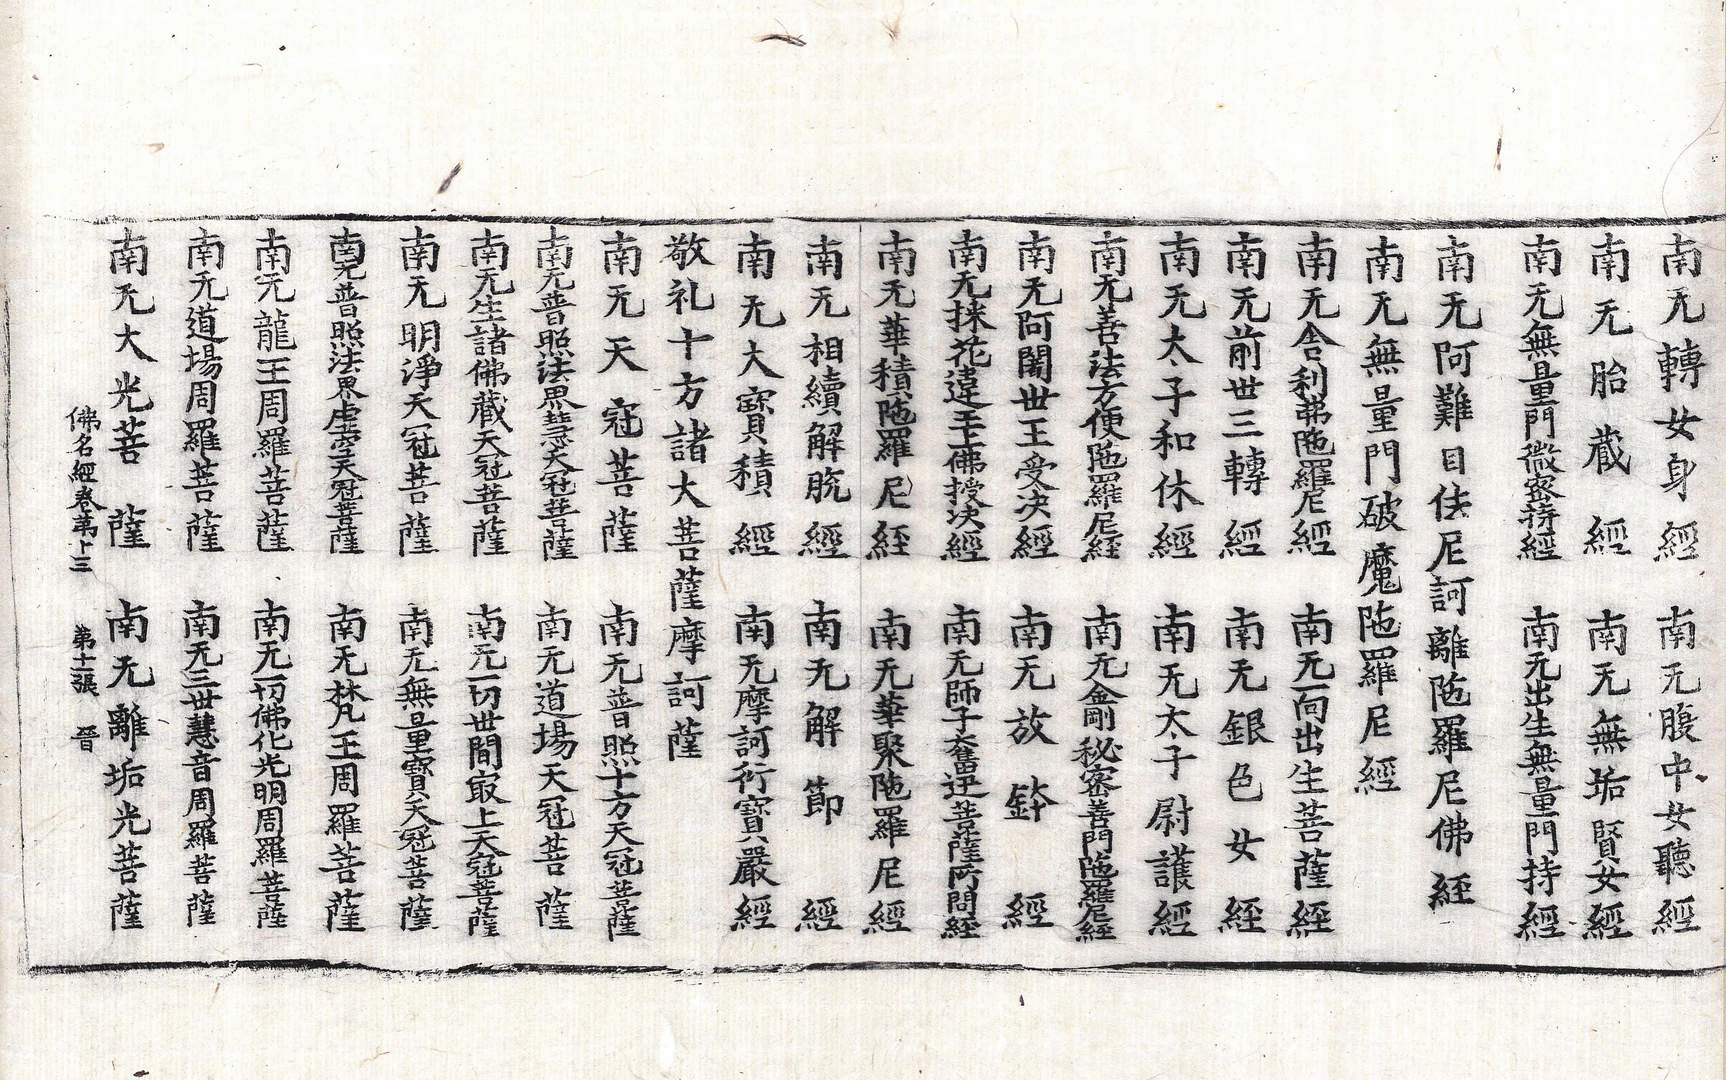 南无轉女身經　南无腹中女聽經
南无胎藏經　南无無垢賢女經
南无無量門微密持經　南无出生無量門持經
南无阿難目佉尼訶離陁羅尼佛經
南无無量門破魔陁羅尼經
南无舎利弗陁羅尼經　南无一向出生菩薩經
南无前世三轉經　南无銀色女經
南无太子和休經　南无太子尉護經
南无善法方便陁羅尼經　南无金剛秘密善門陁羅尼經
南无阿闍世王受决經　南无放鉢經
南无採花違王上佛授决經　南无師子奮迅菩薩所問經
南无華積陁羅尼經　南无華聚陁羅尼經
南无相續解脫經　南无解節經
南无大寶積經　南无摩訶衍寶嚴經
敬礼十方諸大菩薩摩訶薩
南无天冠菩薩　南无普照十方天冠菩薩
南无普照法界慧天冠菩薩　南无道場天冠菩薩
南无生諸佛藏天冠菩薩　南无一切世間冣上天冠菩薩
南无明淨天冠菩薩　南无無量寶天冠菩薩
南无普照法界虛空天冠菩薩　南无梵王周羅菩薩
南无龍王周羅菩薩　南无一切佛化光明周羅菩薩
南无道場周羅菩薩　南无三世慧音周羅菩薩
南无大光菩薩　南无離垢光菩薩
佛名經卷第十三　第十二張　晉